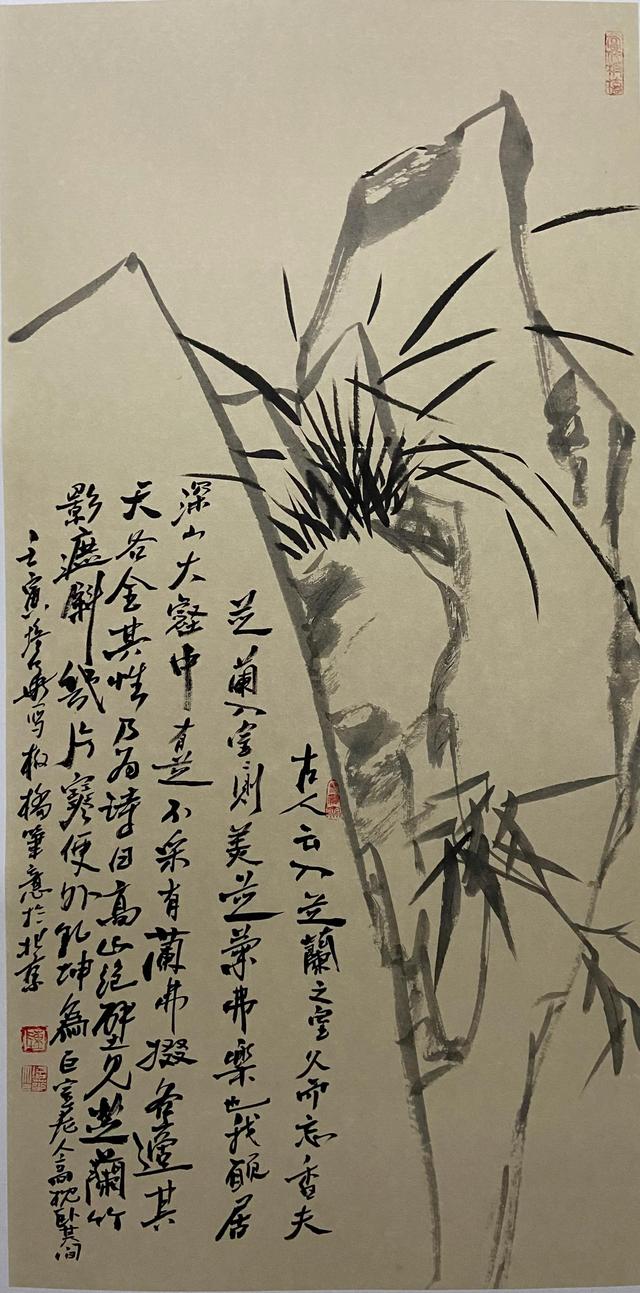 古人云入芝蘭之室久而忘香夫
芝蘭入室則美芝蘭弗樂也我願居
深山大壑中有芝不采有蘭弗掇各適其
天各全其性乃为詩曰高山絕壁見芝蘭竹
影遮斜幾片寒便以乾坤為巨室老人高枕卧其间
壬寅写板橋筆意於北京